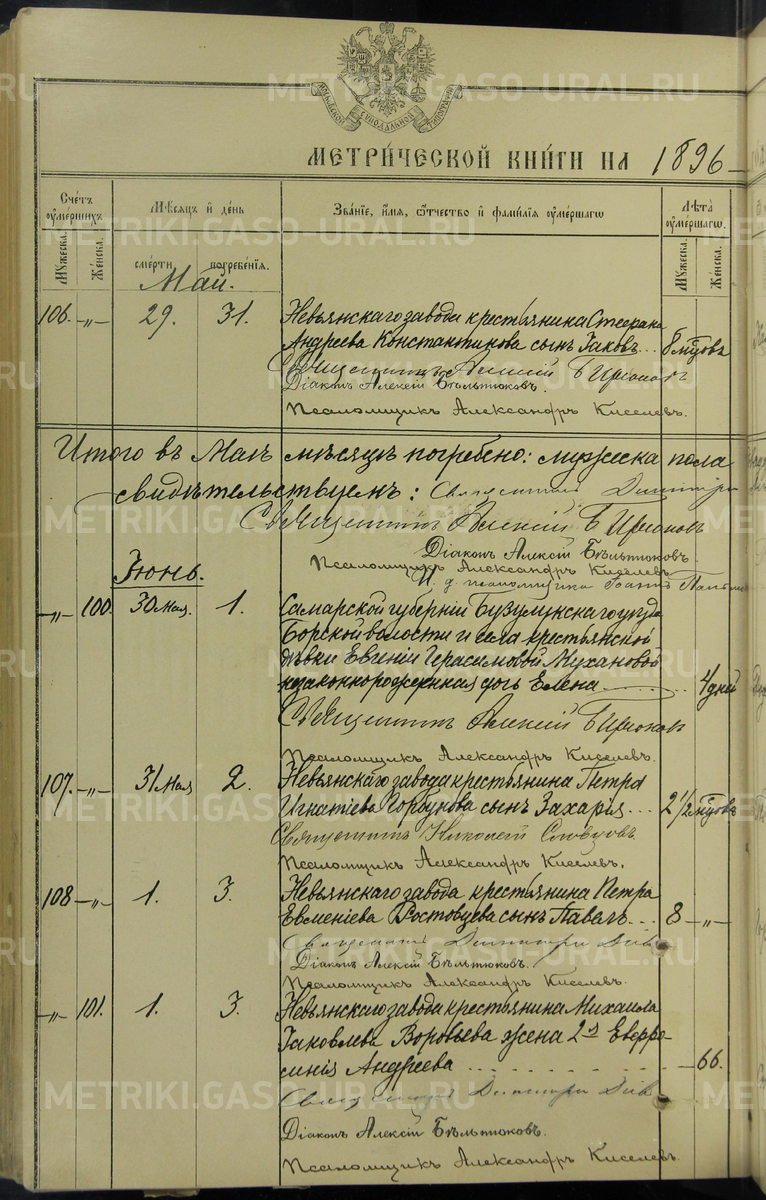 МОСКОВСКОЙ СѴНОДАЛЬНОЙ ТИПОГРАФІИ
МЕТРИ́ЧЕСКОЙ КНИ́ГИ НА 1896
Счетъ оумершихъ
Мѣсяцъ и день
Званіе, имя, отчество и фамилія оумершаго
Лѣта оумершаго.
Мужеска. Женска.
смерти погребенія.
Мужеска. Женска.
Май.
106. -„- 29. 31. Невьянскаго завода крестьянина Стефана
Андреева Константинова сынъ Іаковъ... 8 мѣсц҃овъ
Священникъ Алексій
Діаконъ Алексій Бѣльтюковъ.
Псаломщикъ Александръ Киселевъ.
Итого въ Маѣ мѣсяцѣ погребено: мужеска пола
свидѣтельствуемъ: Священникъ Димитрій
Священникъ Алексій
Діаконъ Алексій Бѣльтюковъ.
Псаломщикъ Александръ Киселевъ
И. д. псаломщика Іоаннъ
Іюнь.
-„- 100. 30 Мая. 1. Самарской губерніи Бузулукскаго уѣзда
Борской волости и села крестьянской
дѣвки Евгеніи Герасимовой Мухановой
незаконнорожденная дочь Елена 4 дней
Священникъ Алексій
Псаломщикъ Александръ Киселевъ.
107. -„- 31 Мая 2. Невьянскаго завода крестьянина Петра
Игнатіева Горбунова сынъ Захарія... 2 1/2 мѣсц҃овъ
Священникъ Николай Словцовъ.
Псаломщикъ Александръ Киселевъ.
108 -„- 1. 3. Невьянскаго завода крестьянина Петра
Евменіева Ростовцева сынъ Павелъ... 8 -„-
Священникъ Димитрій
Діаконъ Алексій Бѣльтюковъ.
Псаломщикъ Александръ Киселевъ.
-„- 101. 1. 3. Невьянскаго завода крестьянина Михаила
Іаковлева Воробьева жена 2я Евфро-
синія Андреева - 66.
Священникъ Димитрій
Діаконъ Алексій Бѣльтюковъ.
Псаломщикъ Александръ Киселевъ.
METRIKI.GASO-URAL.RU